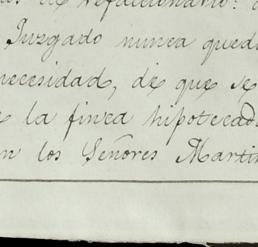 de refaccionario:
Juzgado nunca qued
necesidad, de que se
la finca hipotecad
n los Señores Martin